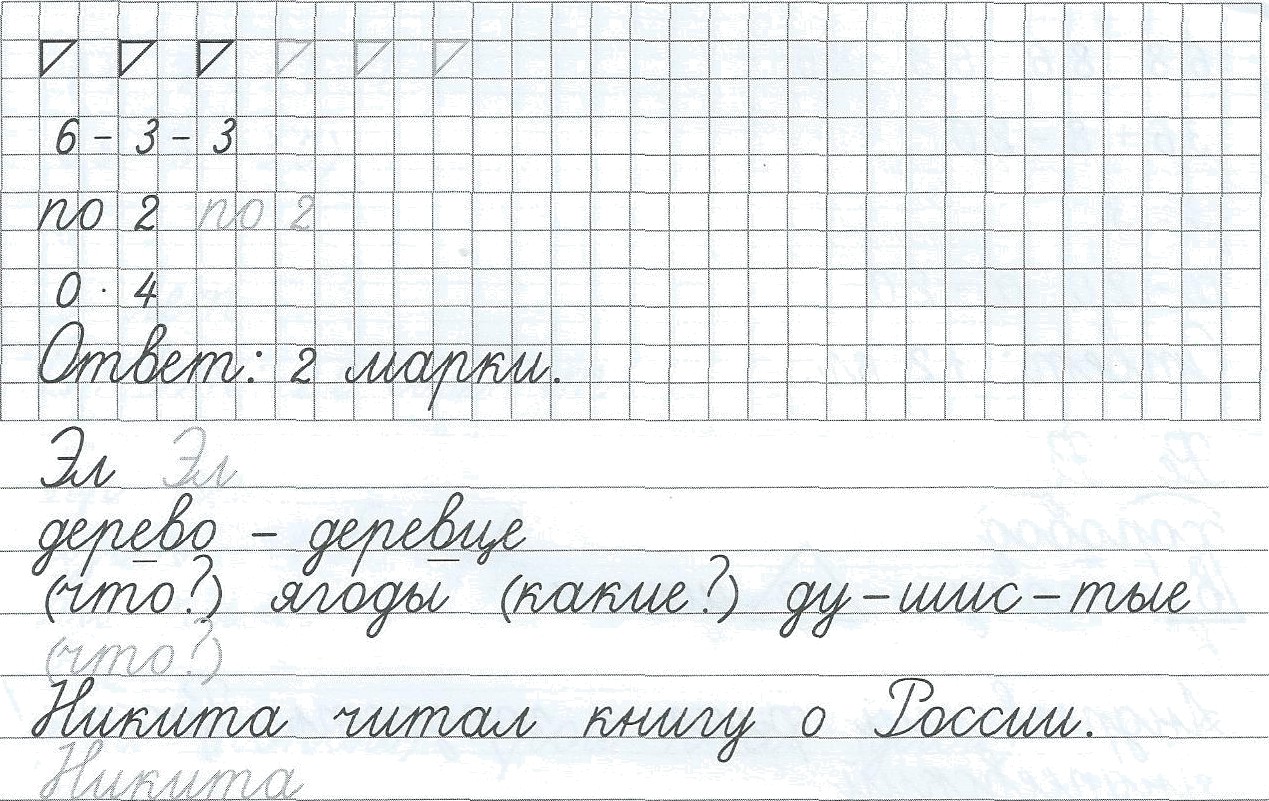 6 - 3 - 3
по 2 по 2
0 · 4
Ответ: 2 марки.
Эл Эл
дерево - деревце
(что?) ягоды (какие?) ду-шис-тые
(что?)
Никита читал книгу о России.
Никита